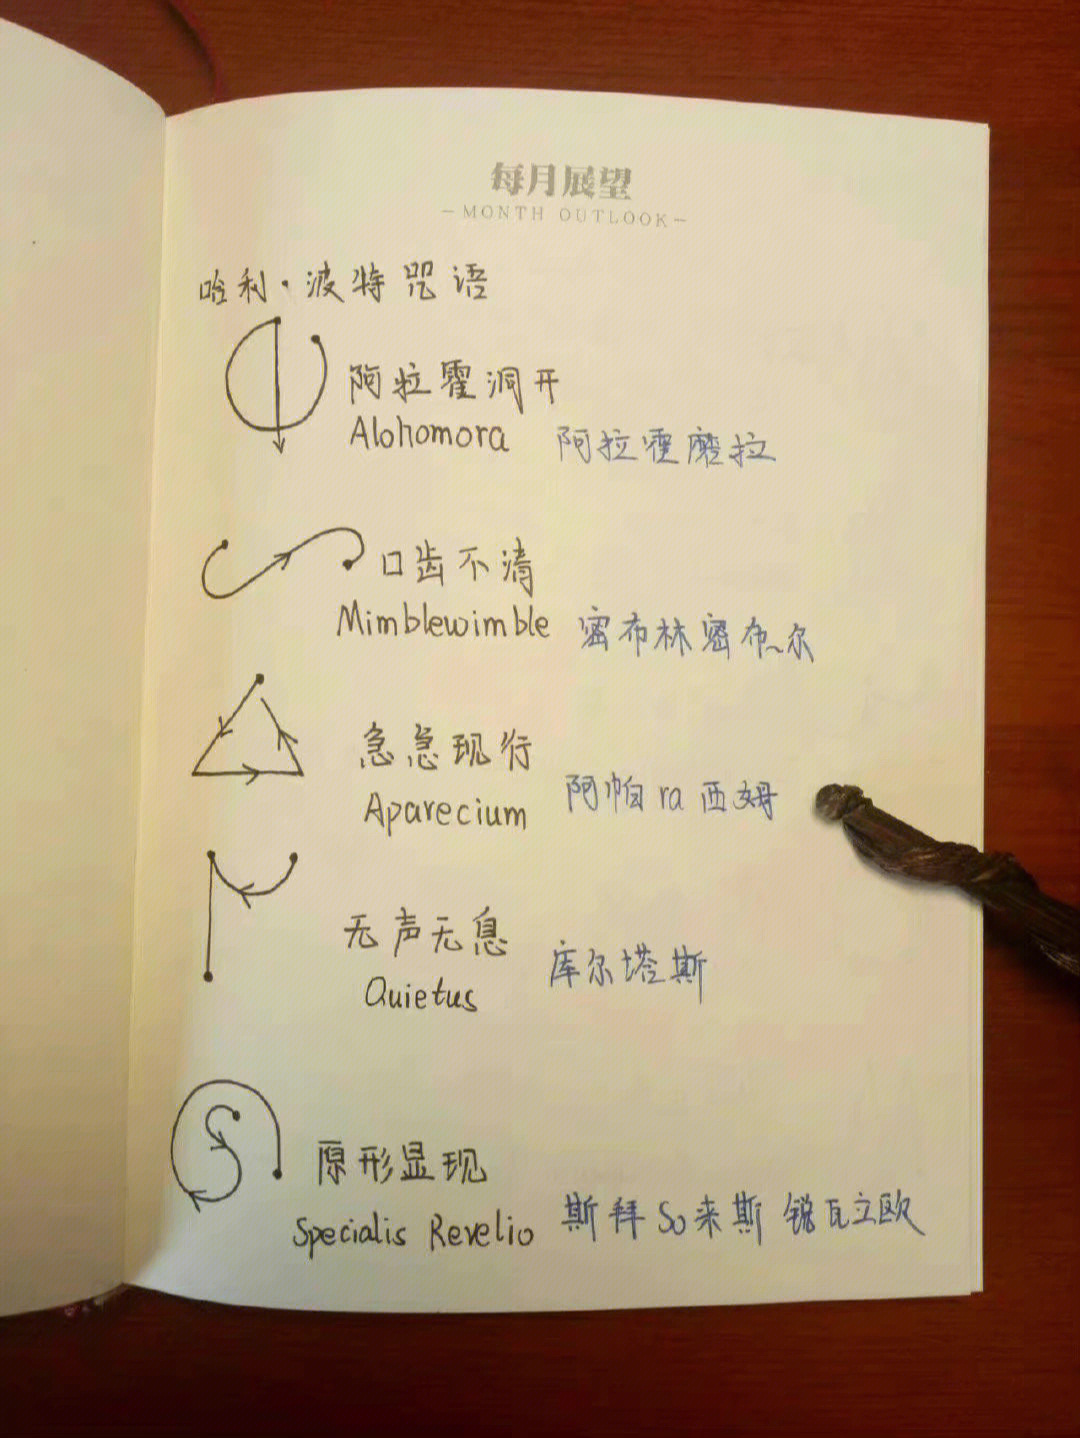 每月展望
-MONTH OUTLOOK-
哈利·波特咒语
阿拉霍洞开
Alohomora 阿拉霍磨拉
口齿不清
Mimblewimble 密布林密布尔
急急现行
Aparecium 阿帕ra西姆
无声无息
Quietus 库尔塔斯
原形显现
Specialis Revelio 斯拜So来斯 锐瓦立欧